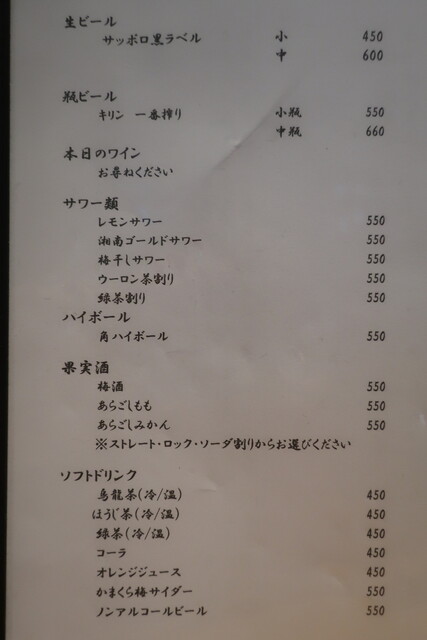 生ビール
サッポロ黒ラベル 小 450
中 600
瓶ビール
キリン 一番搾り 小瓶 550
中瓶 660
本日のワイン
お尋ねください
サワー類
レモンサワー 550
湘南ゴールドサワー 550
梅干しサワー 550
ウーロン茶割り 550
緑茶割り 550
ハイボール
角ハイボール 550
果実酒
梅酒 550
あらごしもも 550
あらごしみかん 550
※ストレート・ロック・ソーダ割りからお選びください
ソフトドリンク
烏龍茶(冷/温) 450
ほうじ茶(冷/温) 450
緑茶(冷/温) 450
コーラ 450
オレンジジュース 450
かまくら梅サイダー 550
ノンアルコールビール 550